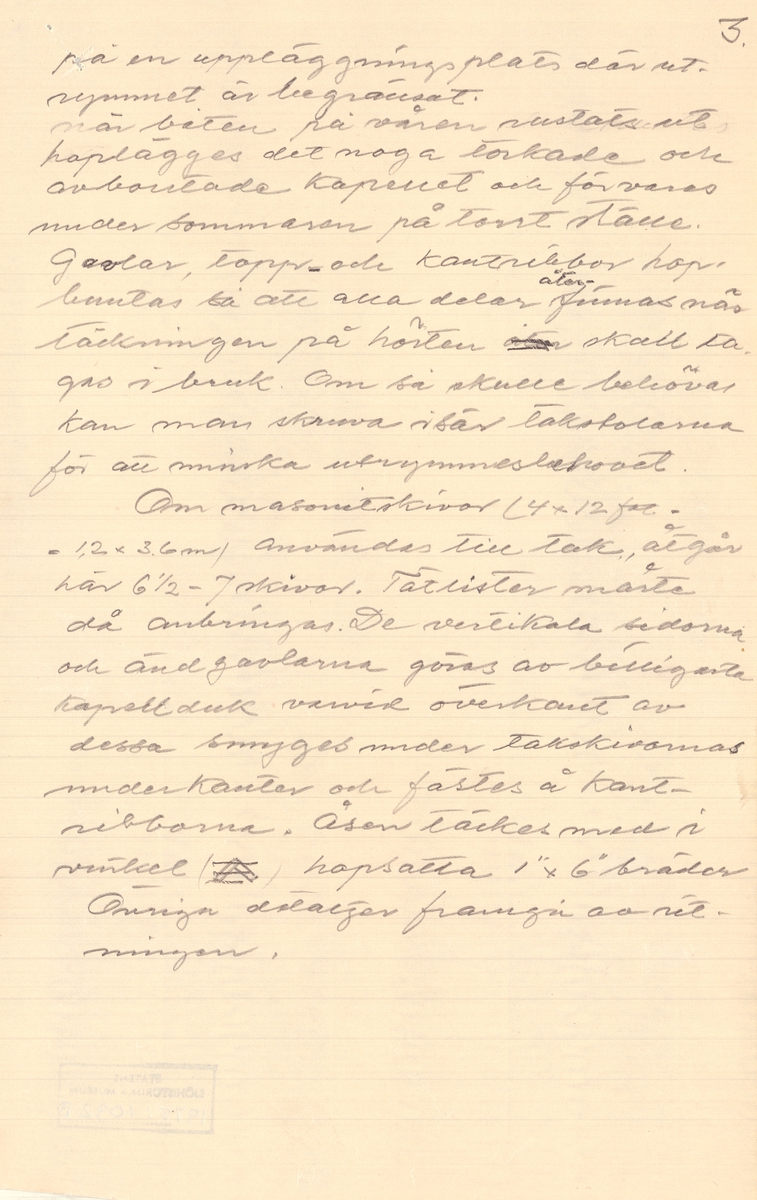 3.
på en uppläggningsplats där ut-
rymmet är begränsat.
när båten på våren rustats ut
hoplägges det noga torkade och
avborstade kapellet och förvaras
under sommaren på torrt ställe.
Gavlar, topp- och kantribbor hop-
buntas så att alla delar åter-finnas när
täckningen på hösten skall ta-
gas i bruk. Om så skulle behövas
kan man skruva isär takstolarna
för att minska utrymmesbehovet.
Om masonitskivor (4 x 12 fot =
= 1,2 x 3,6 m) användas till tak, åtgår
här 6 1/2 - 7 skivor. Tätlister måste
då anbringas. De vertikala sidorna
och ändgavlarna göras av billigaste
kapellduk varvid överkant av
dessa smyges under takskivornas
underkanter och fästes å kant-
ribborna. Åsen täckes med i
vinkel hopsatta 1" x 6" bräder
Övriga detaljer framgå av rit-
ningen.
STATENS
SJÖHISTORISKA MUSEUM